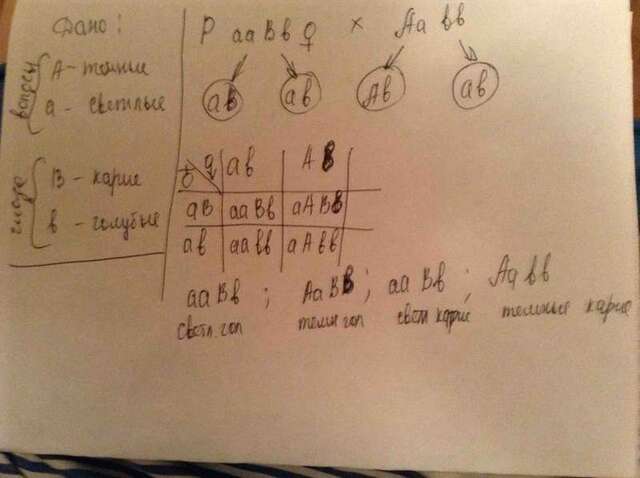 Дано:
волосы
A - темные
a - светлые
глаза
B - карие
в - голубые
P aaBв ♀ × Aa вв
aB aв Aв aв
♀ aв AB
aB aaBв aABв
aв aaвв aAвв
aaBв ; AaBB ; aaBв ; Aaвв
светл. гол темн гол светл карие темные карие